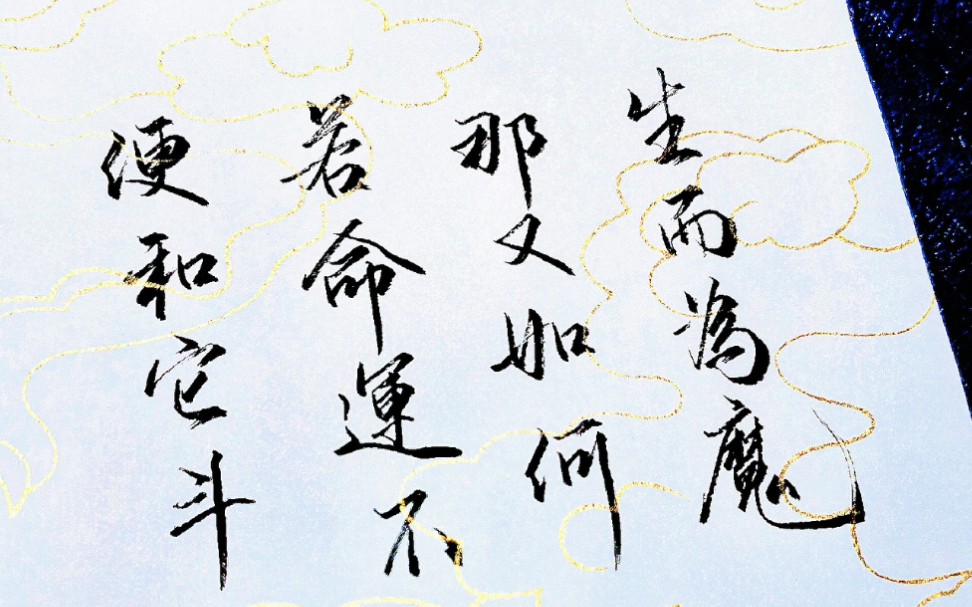 生而為魔
那又如何
若命運不
便和它斗